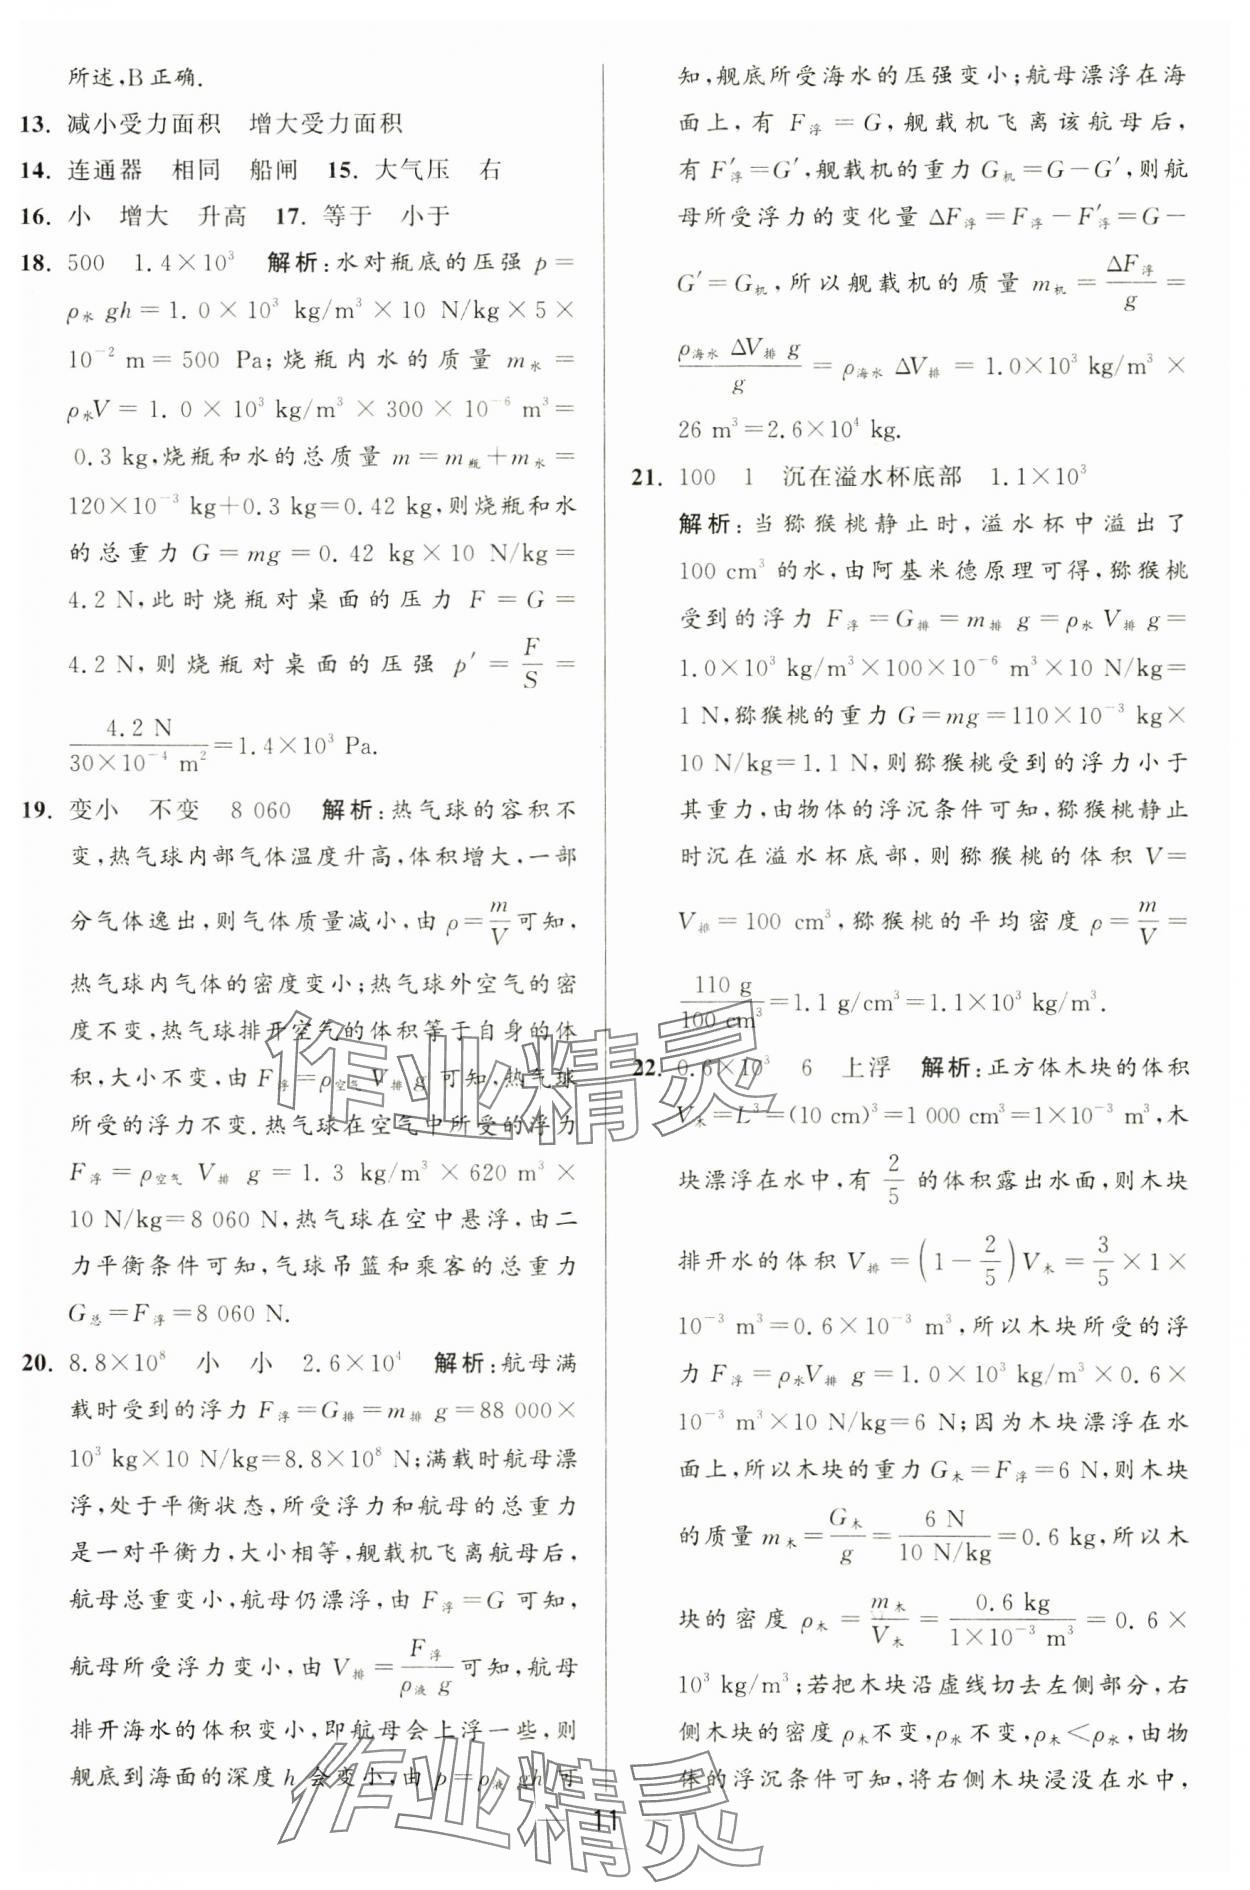 所述,B正确.
13. 减小受力面积　增大受力面积
14. 连通器　相同　船闸　15. 大气压　右
16. 小　增大　升高　17. 等于　小于
18. 500　1.4×10³　解析:水对瓶底的压强 p=
ρ水 gh=1.0×10³ kg/m³×10 N/kg×5×
10⁻² m=500 Pa;烧瓶内水的质量 m水=
ρ水V=1.0×10³ kg/m³×300×10⁻⁶ m³=
0.3 kg,烧瓶和水的总质量 m=m瓶+m水=
120×10⁻³ kg+0.3 kg=0.42 kg,则烧瓶和水
的总重力 G=mg=0.42 kg×10 N/kg=
4.2 N,此时烧瓶对桌面的压力 F=G=
4.2 N,则烧瓶对桌面的压强 p′=F/S=
4.2 N/(30×10⁻⁴ m²)=1.4×10³ Pa.
19. 变小　不变　8 060　解析:热气球的容积不
变,热气球内部气体温度升高,体积增大,一部
分气体逸出,则气体质量减小,由 ρ=m/V可知,
热气球内气体的密度变小;热气球外空气的密
度不变,热气球排开空气的体积等于自身的体
积,大小不变,由 F浮=ρ空气V排 g 可知,热气球
所受的浮力不变.热气球在空气中所受的浮力
F浮=ρ空气 V排 g=1.3 kg/m³×620 m³×
10 N/kg=8 060 N,热气球在空中悬浮,由二
力平衡条件可知,气球吊篮和乘客的总重力
G总=F浮=8 060 N.
20. 8.8×10⁸　小　小　2.6×10⁴　解析:航母满
载时受到的浮力 F浮=G排=m排 g=88 000×
10³ kg×10 N/kg=8.8×10⁸ N;满载时航母漂
浮,处于平衡状态,所受浮力和航母的总重力
是一对平衡力,大小相等,舰载机飞离航母后,
航母总重变小,航母仍漂浮,由 F浮=G 可知,
航母所受浮力变小,由 V排=F浮/(ρ液 g)可知,航母
排开海水的体积变小,即航母会上浮一些,则
舰底到海面的深度 h 会变小,由 p=ρ液 gh 可
知,舰底所受海水的压强变小;航母漂浮在海
面上,有 F浮=G,舰载机飞离该航母后,
有 F′浮=G′,舰载机的重力 G机=G-G′,则航
母所受浮力的变化量 ΔF浮=F浮-F′浮=G-
G′=G机,所以舰载机的质量 m机=ΔF浮/g=
ρ海水 ΔV排 g/g=ρ海水 ΔV排=1.0×10³ kg/m³×
26 m³=2.6×10⁴ kg.
21. 100　1　沉在溢水杯底部　1.1×10³
解析:当猕猴桃静止时,溢水杯中溢出了
100 cm³ 的水,由阿基米德原理可得,猕猴桃
受到的浮力 F浮=G排=m排 g=ρ水 V排 g=
1.0×10³ kg/m³×100×10⁻⁶ m³×10 N/kg=
1 N,猕猴桃的重力 G=mg=110×10⁻³ kg×
10 N/kg=1.1 N,则猕猴桃受到的浮力小于
其重力,由物体的浮沉条件可知,猕猴桃静止
时沉在溢水杯底部,则猕猴桃的体积 V=
V排=100 cm³,猕猴桃的平均密度 ρ=m/V=
110 g/100 cm³=1.1 g/cm³=1.1×10³ kg/m³.
22. 0.6×10³　6　上浮　解析:正方体木块的体积
V木=L³=(10 cm)³=1 000 cm³=1×10⁻³ m³,木
块漂浮在水中,有 2/5 的体积露出水面,则木块
排开水的体积 V排=(1-2/5)V木=3/5×1×
10⁻³ m³=0.6×10⁻³ m³,所以木块所受的浮
力 F浮=ρ水V排 g=1.0×10³ kg/m³×0.6×
10⁻³ m³×10 N/kg=6 N;因为木块漂浮在水
面上,所以木块的重力 G木=F浮=6 N,则木块
的质量 m木=G木/g=6 N/(10 N/kg)=0.6 kg,所以木
块的密度 ρ木=m木/V木=0.6 kg/(1×10⁻³ m³)=0.6×
10³ kg/m³;若把木块沿虚线切去左侧部分,右
侧木块的密度 ρ木不变,ρ水不变,ρ木<ρ水,由物
体的浮沉条件可知,将右侧木块浸没在水中,
11
作业精灵
作业精灵